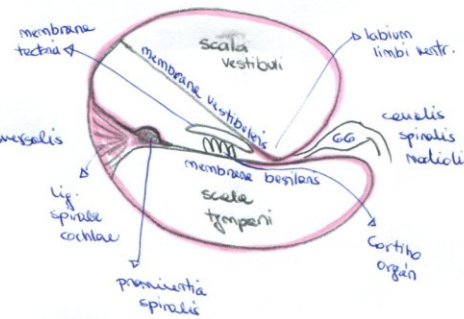 membrane
tectoria
scala
vestibuli
labium
limbi ventr.
membrane vestibularis
GG
canalis
spiralis
modioli
versalis
membrane basilaris
lig.
spirale
cochlae
scala
tympani
Cortiho
orgán
prominentia
spiralis